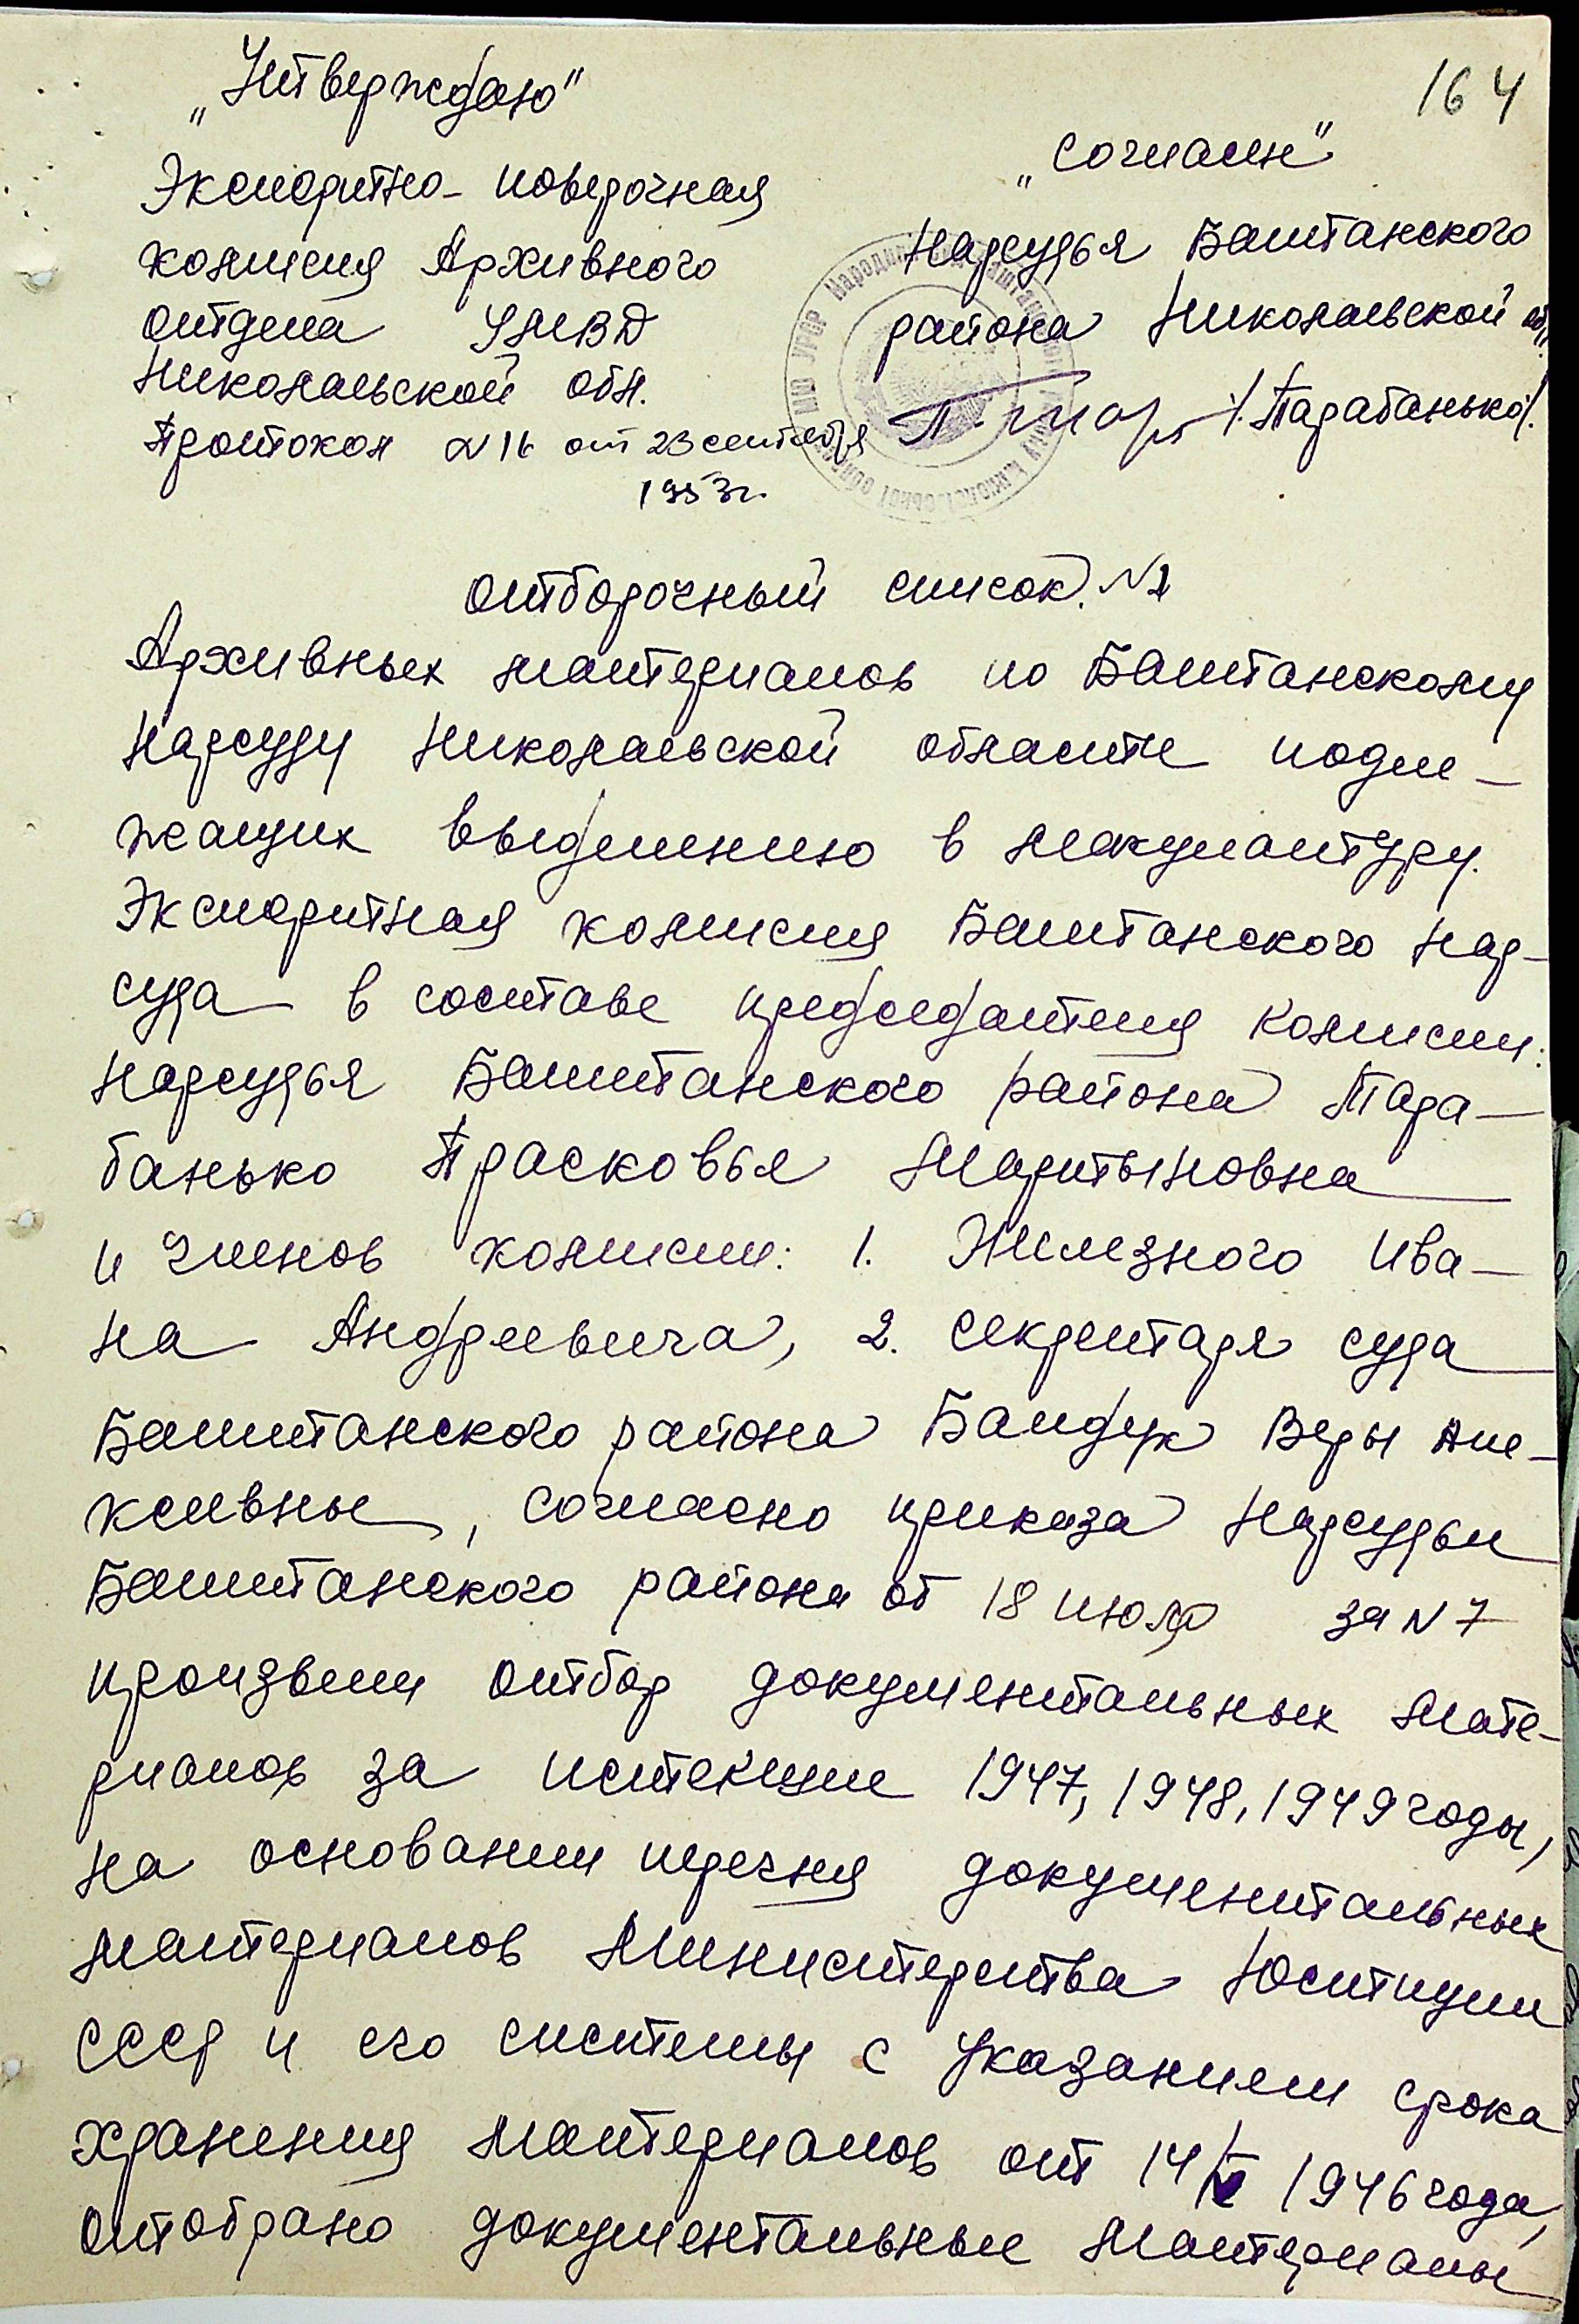 164
„Утверждаю"
Экспертно-поверочная
комисия Архивного
отдела УМВД
Николаевской обл.
Протокол N 16 от 23 сентября
1953 г.
„Согласен"
Нарсудья Баштанского
района Николаевской обл.
/.Тарабанько/.
Отборочный список. N 1
Архивных материалов по Баштанскому
Нарсуду Николаевской области подле-
жащих выделению в макулатуру.
Экспертная комисия Баштанского Нар-
суда в составе председателя комисии:
Нарсудья Баштанского района Тара-
банько Прасковья Мартыновна
и членов комисии: 1. Железного Ива-
на Андреевича, 2. секретаря суда
Баштанского района Бандук Веры Але-
ксевны, согласно приказа Нарсудьи
Баштанского района от 18 июля за N 7
произвели отбор документальных мате-
риалов за истекшие 1947, 1948, 1949 годы,
на основании перечня документальных
материалов Министерства Юстиции
СССР и его системы с указанием срока
хранения материалов от 14/V 1946 года,
отобрано документальные материалы